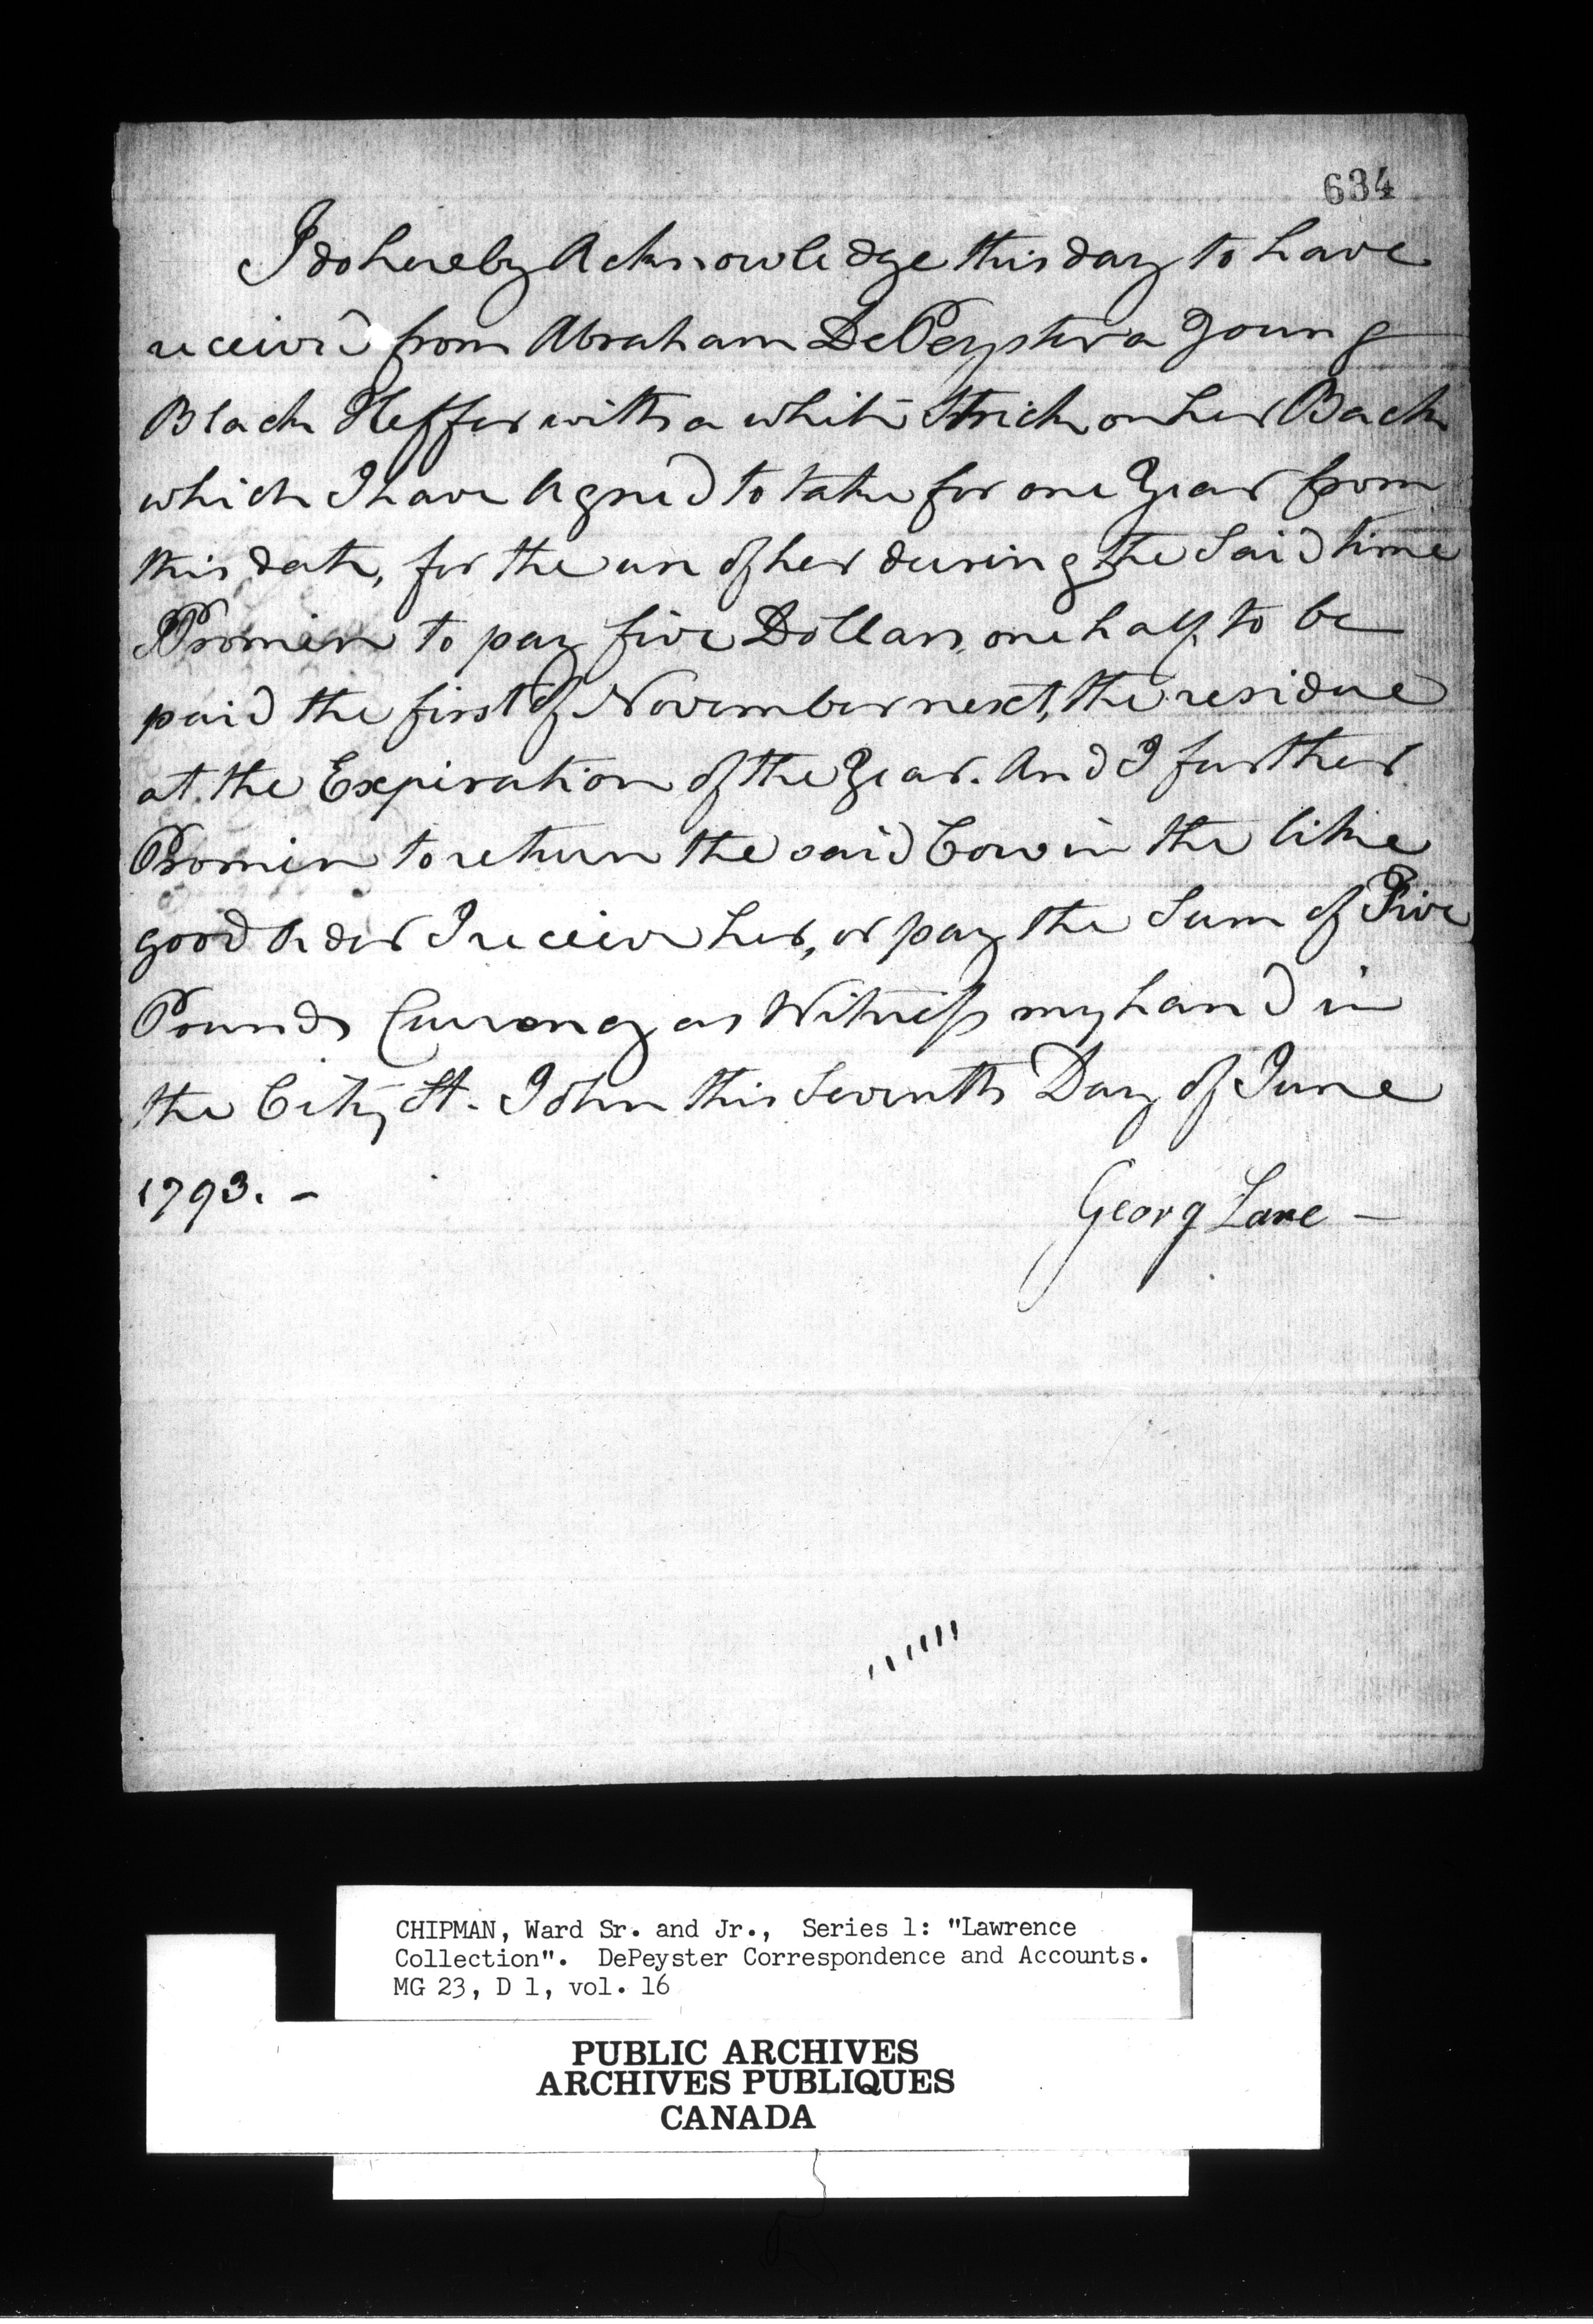 634
I do hereby Acknowledge this day to have
receiv'd from Abraham DePeyster a Young
Black Heffer with a white Strick on her Back
which I have Agreed to take for one Year from
this date, for the use of her during the Said time
Promise to pay five Dollars, one half to be
paid the first of November next, the residue
at the Expiration of the Year. And I further
Promise to return the said Cow in the like
good Order I receive her, or pay the Sum of Five
Pounds Currency as Witness my hand in
the City St. John this Seventh Day of June
1793. -
Georg Lane -
CHIPMAN, Ward Sr. and Jr., Series 1: "Lawrence
Collection". DePeyster Correspondence and Accounts.
MG 23, D 1, vol. 16
PUBLIC ARCHIVES
ARCHIVES PUBLIQUES
CANADA